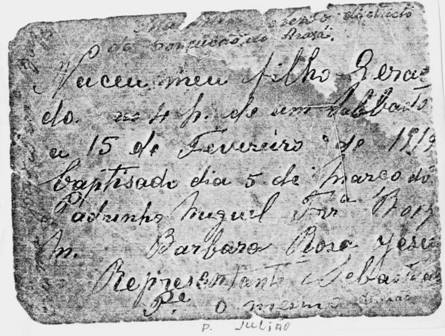 de Conceição do
Nasceu meu filho Geral
do as 4 h. de um Sabbado
a 15 de Fevereiro de 1919
Baptisado dia 5 de Março do
Padrinho Miguel Frra
M. Barbara Rosa
Representante Sebastião
Pe. o mesmo
P. JULIÃO